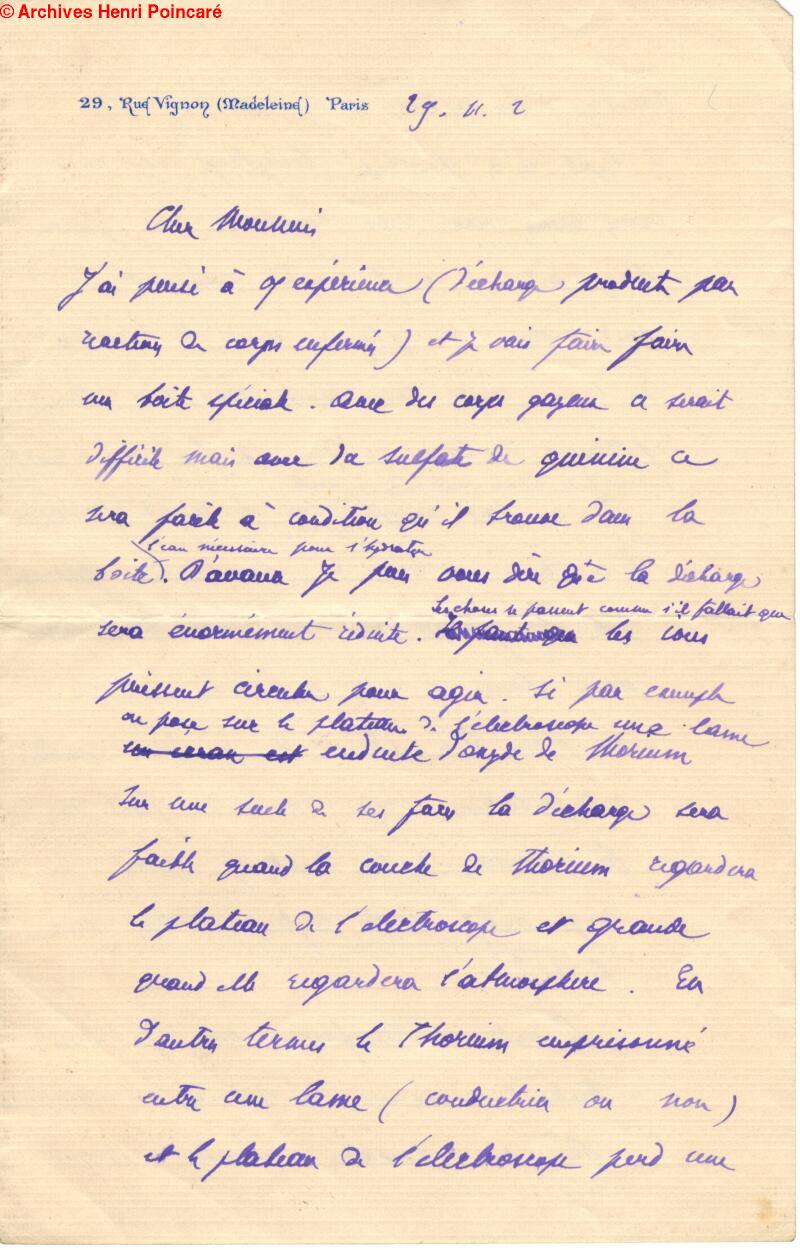 © Archives Henri Poincaré
29, Rue Vignon (Madeleine) Paris 29. 11. 2
Cher Monsieur
J'ai pensé à expérience (décharge produite par
réactions de corps enfermés) et je vais faire faire
une boîte spéciale. Avec des corps gazeux ce serait
difficile mais avec du sulfate de quinine ce
sera facile à condition qu'il trouve dans la
l'eau nécessaire pour l'hydrater
boîte. D'avance je puis vous dire que la décharge
Les choses se passent comme s'il fallait que
sera énormément réduite. les ions
puissent circuler pour agir. Si par exemple
on pose sur le plateau de l'électroscope une lame
un écran est enduite d'oxyde de Thorium
sur une seule de ses faces la décharge sera
faible quand la couche de Thorium regardera
le plateau de l'électroscope et grande
quand elle regardera l'atmosphère. En
d'autres termes le Thorium emprisonné
entre une lame (conductrice ou non)
et le plateau de l'électroscope perd une